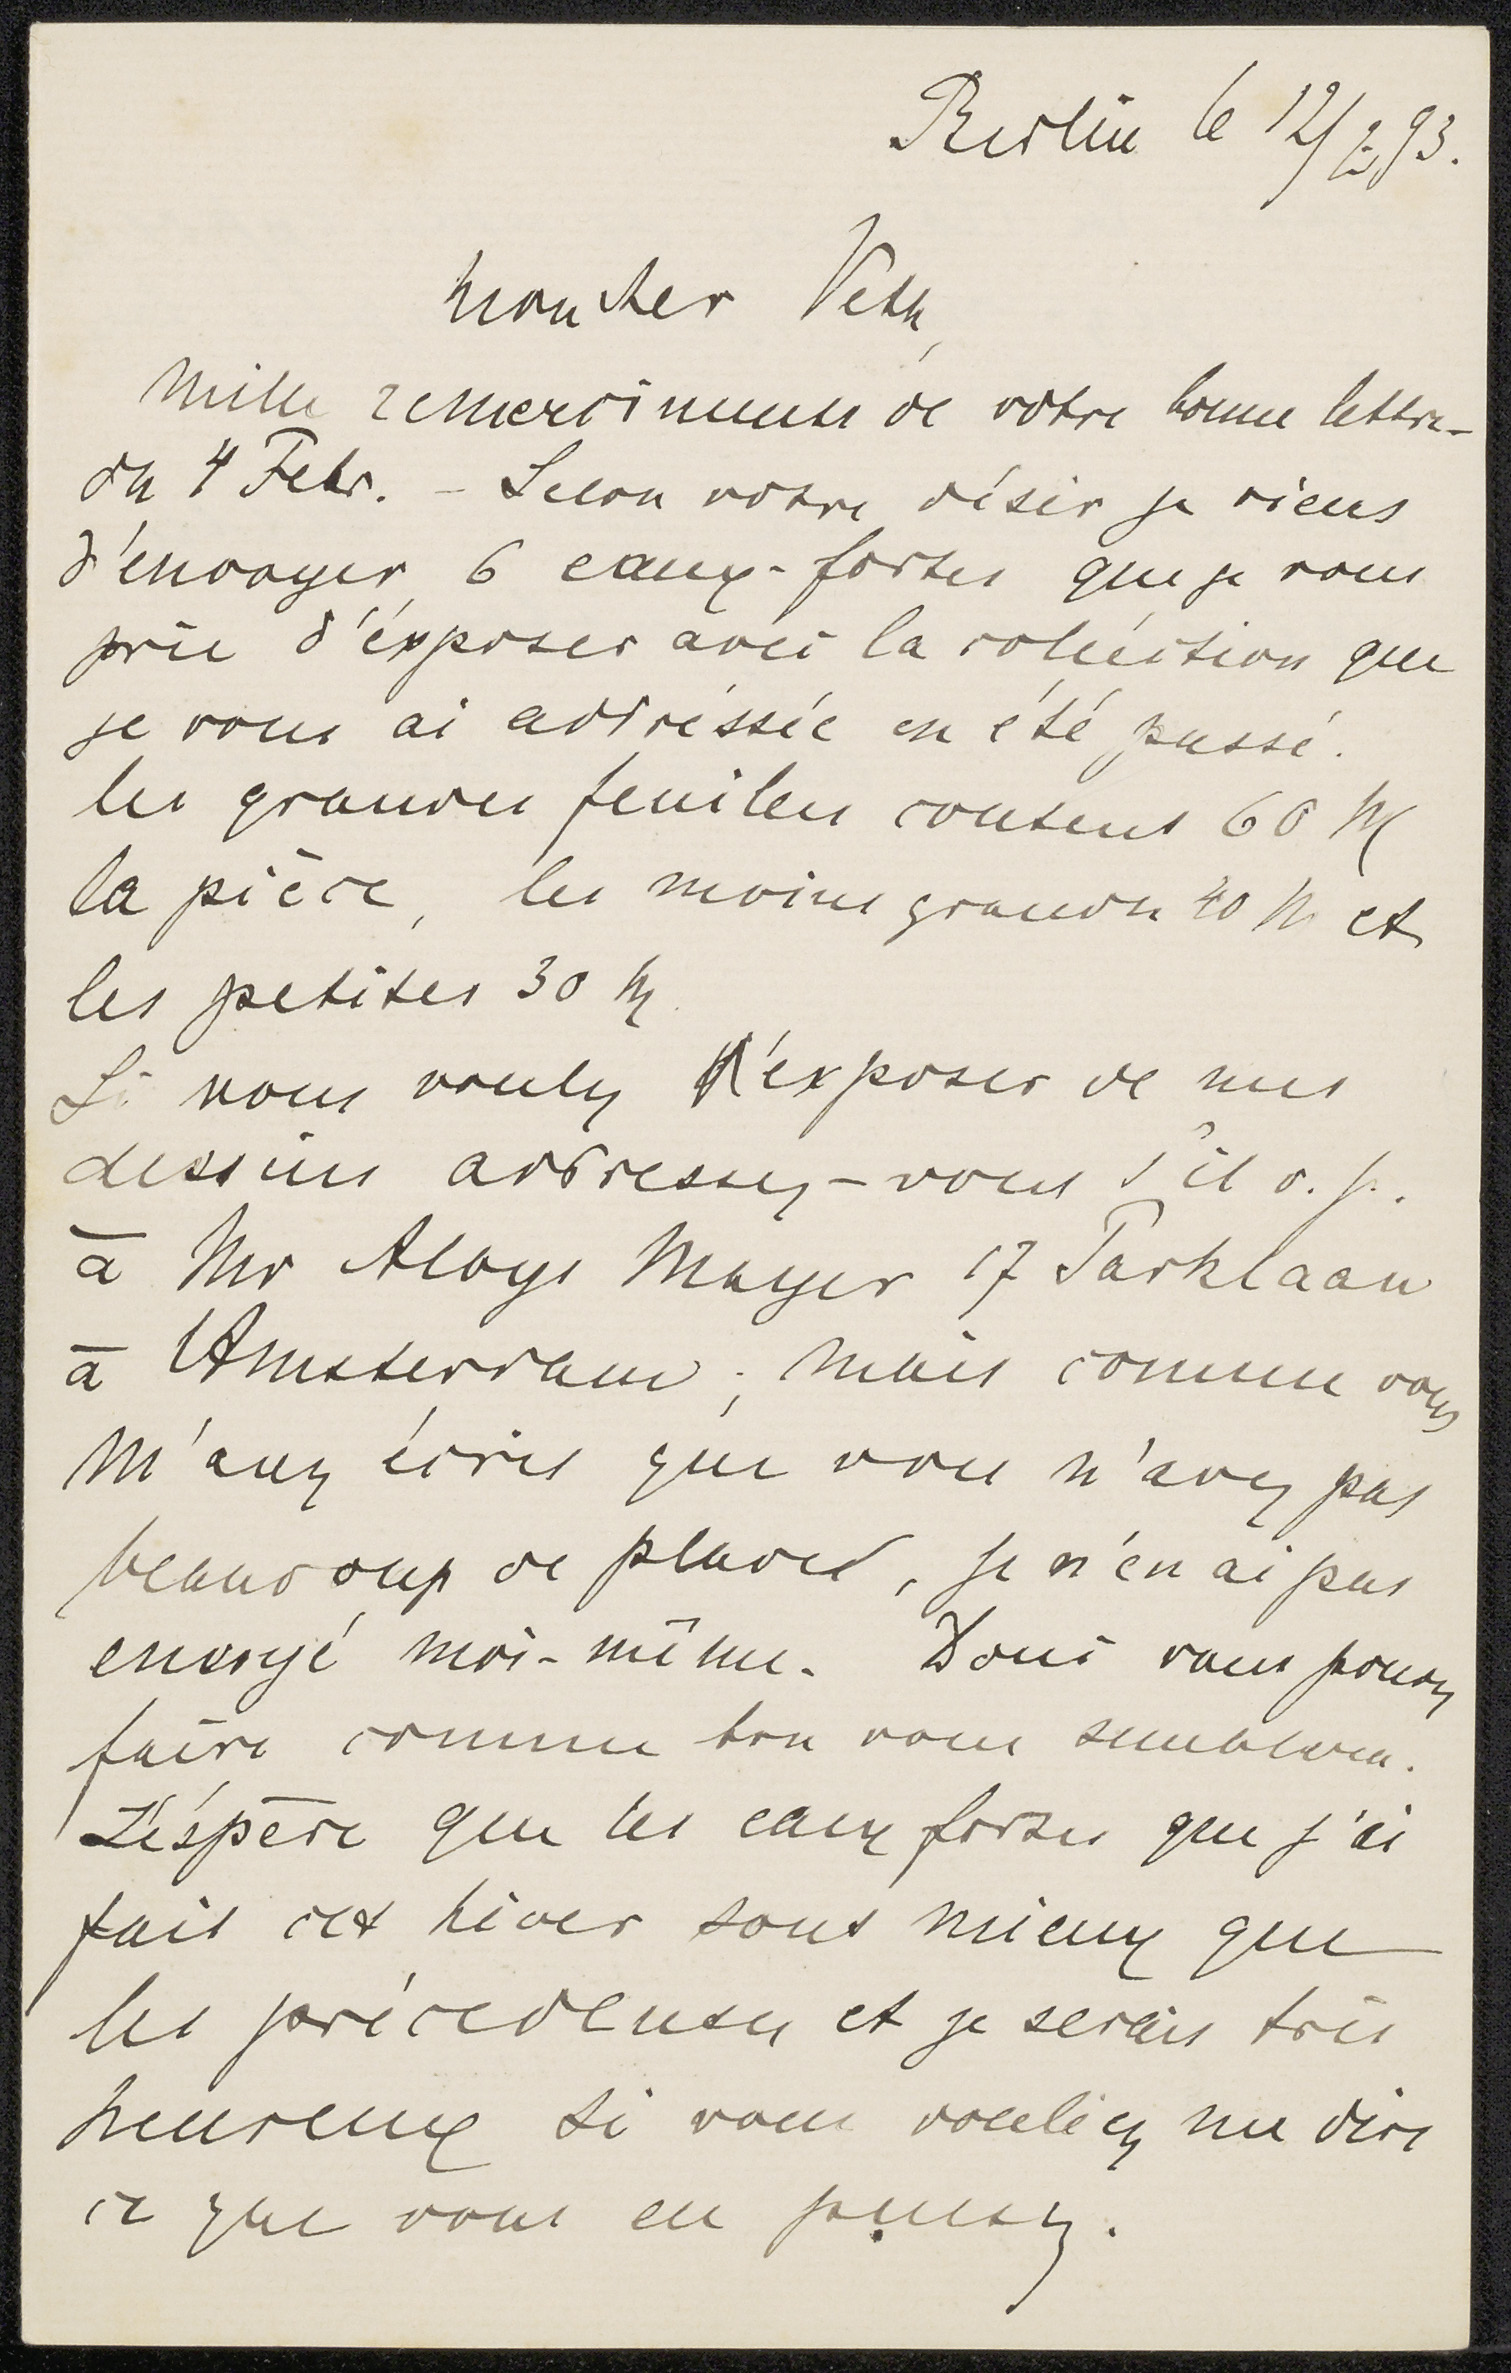 Berlin le 12/2 93.
Mon cher Veth,
Mille remerciments de votre bonne lettre
du 4 Febr. – Selon votre désir je viens
d'envoyer 6 eaux-fortes que je vous
prie d'éxposer avec la colléction que
je vous ai adréssée en été passé.
les grandes feuilles coutent 60 M
la pièce, les moins grandes 40 M et
les petites 30 M.
Si vous voulez éxposer de mes
dessins addressez-vous s'il v. p.
à Mr Aloys Mayer 17 Parklaan
à Amsterdam; mais comme vous
m'avez écris que vous n'avez pas
beaucoup de place, je n'en ai pas
envoyé moi-même. Donc vous pouvez
faire comme bon vous semblera.
J'éspère que les eaux fortes que j'ai
fait cet hiver sont mieux que
les précedentes et je serais très
heureux si vous vouliez me dire
ce que vous en pensez.